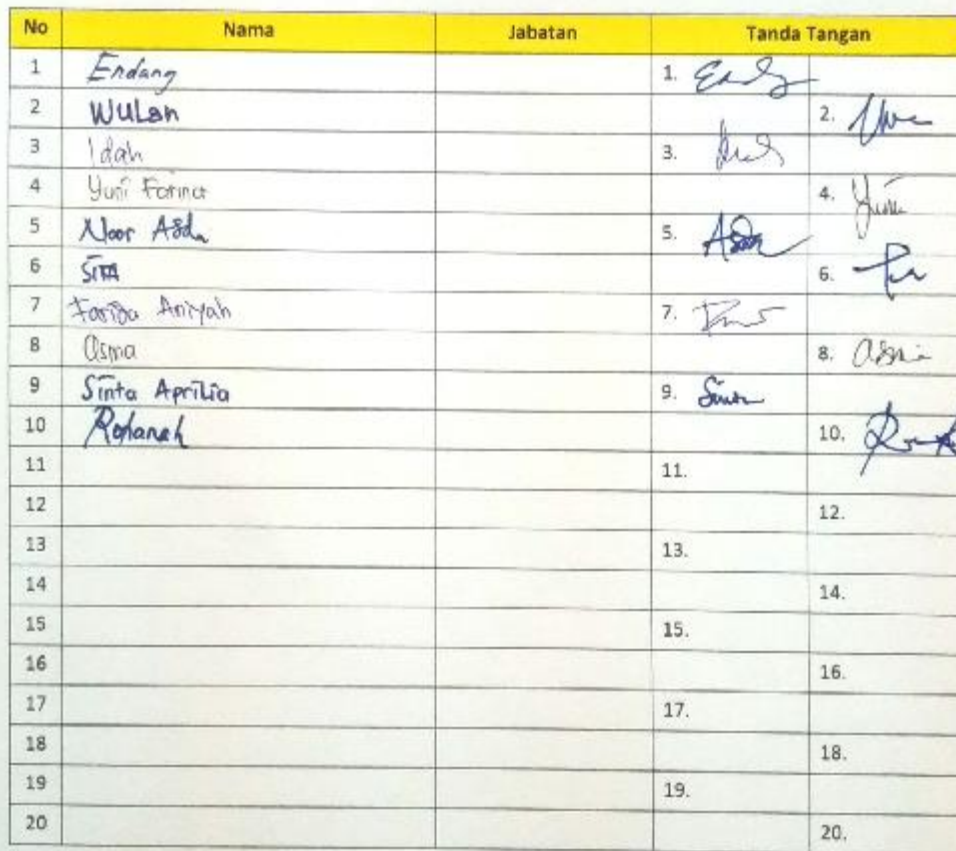 No Nama Jabatan Tanda Tangan
1 Endang 1.
2 Wulan 2.
3 Idah 3.
4 Yuni Farina 4. Yuni
5 Noor Asda 5. Asda
6 Siti 6.
7 Farida Aniyah 7.
8 Asma 8. Asma
9 Sinta Aprilia 9. Sinta
10 Rohanah 10.
11 11.
12 12.
13 13.
14 14.
15 15.
16 16.
17 17.
18 18.
19 19.
20 20.